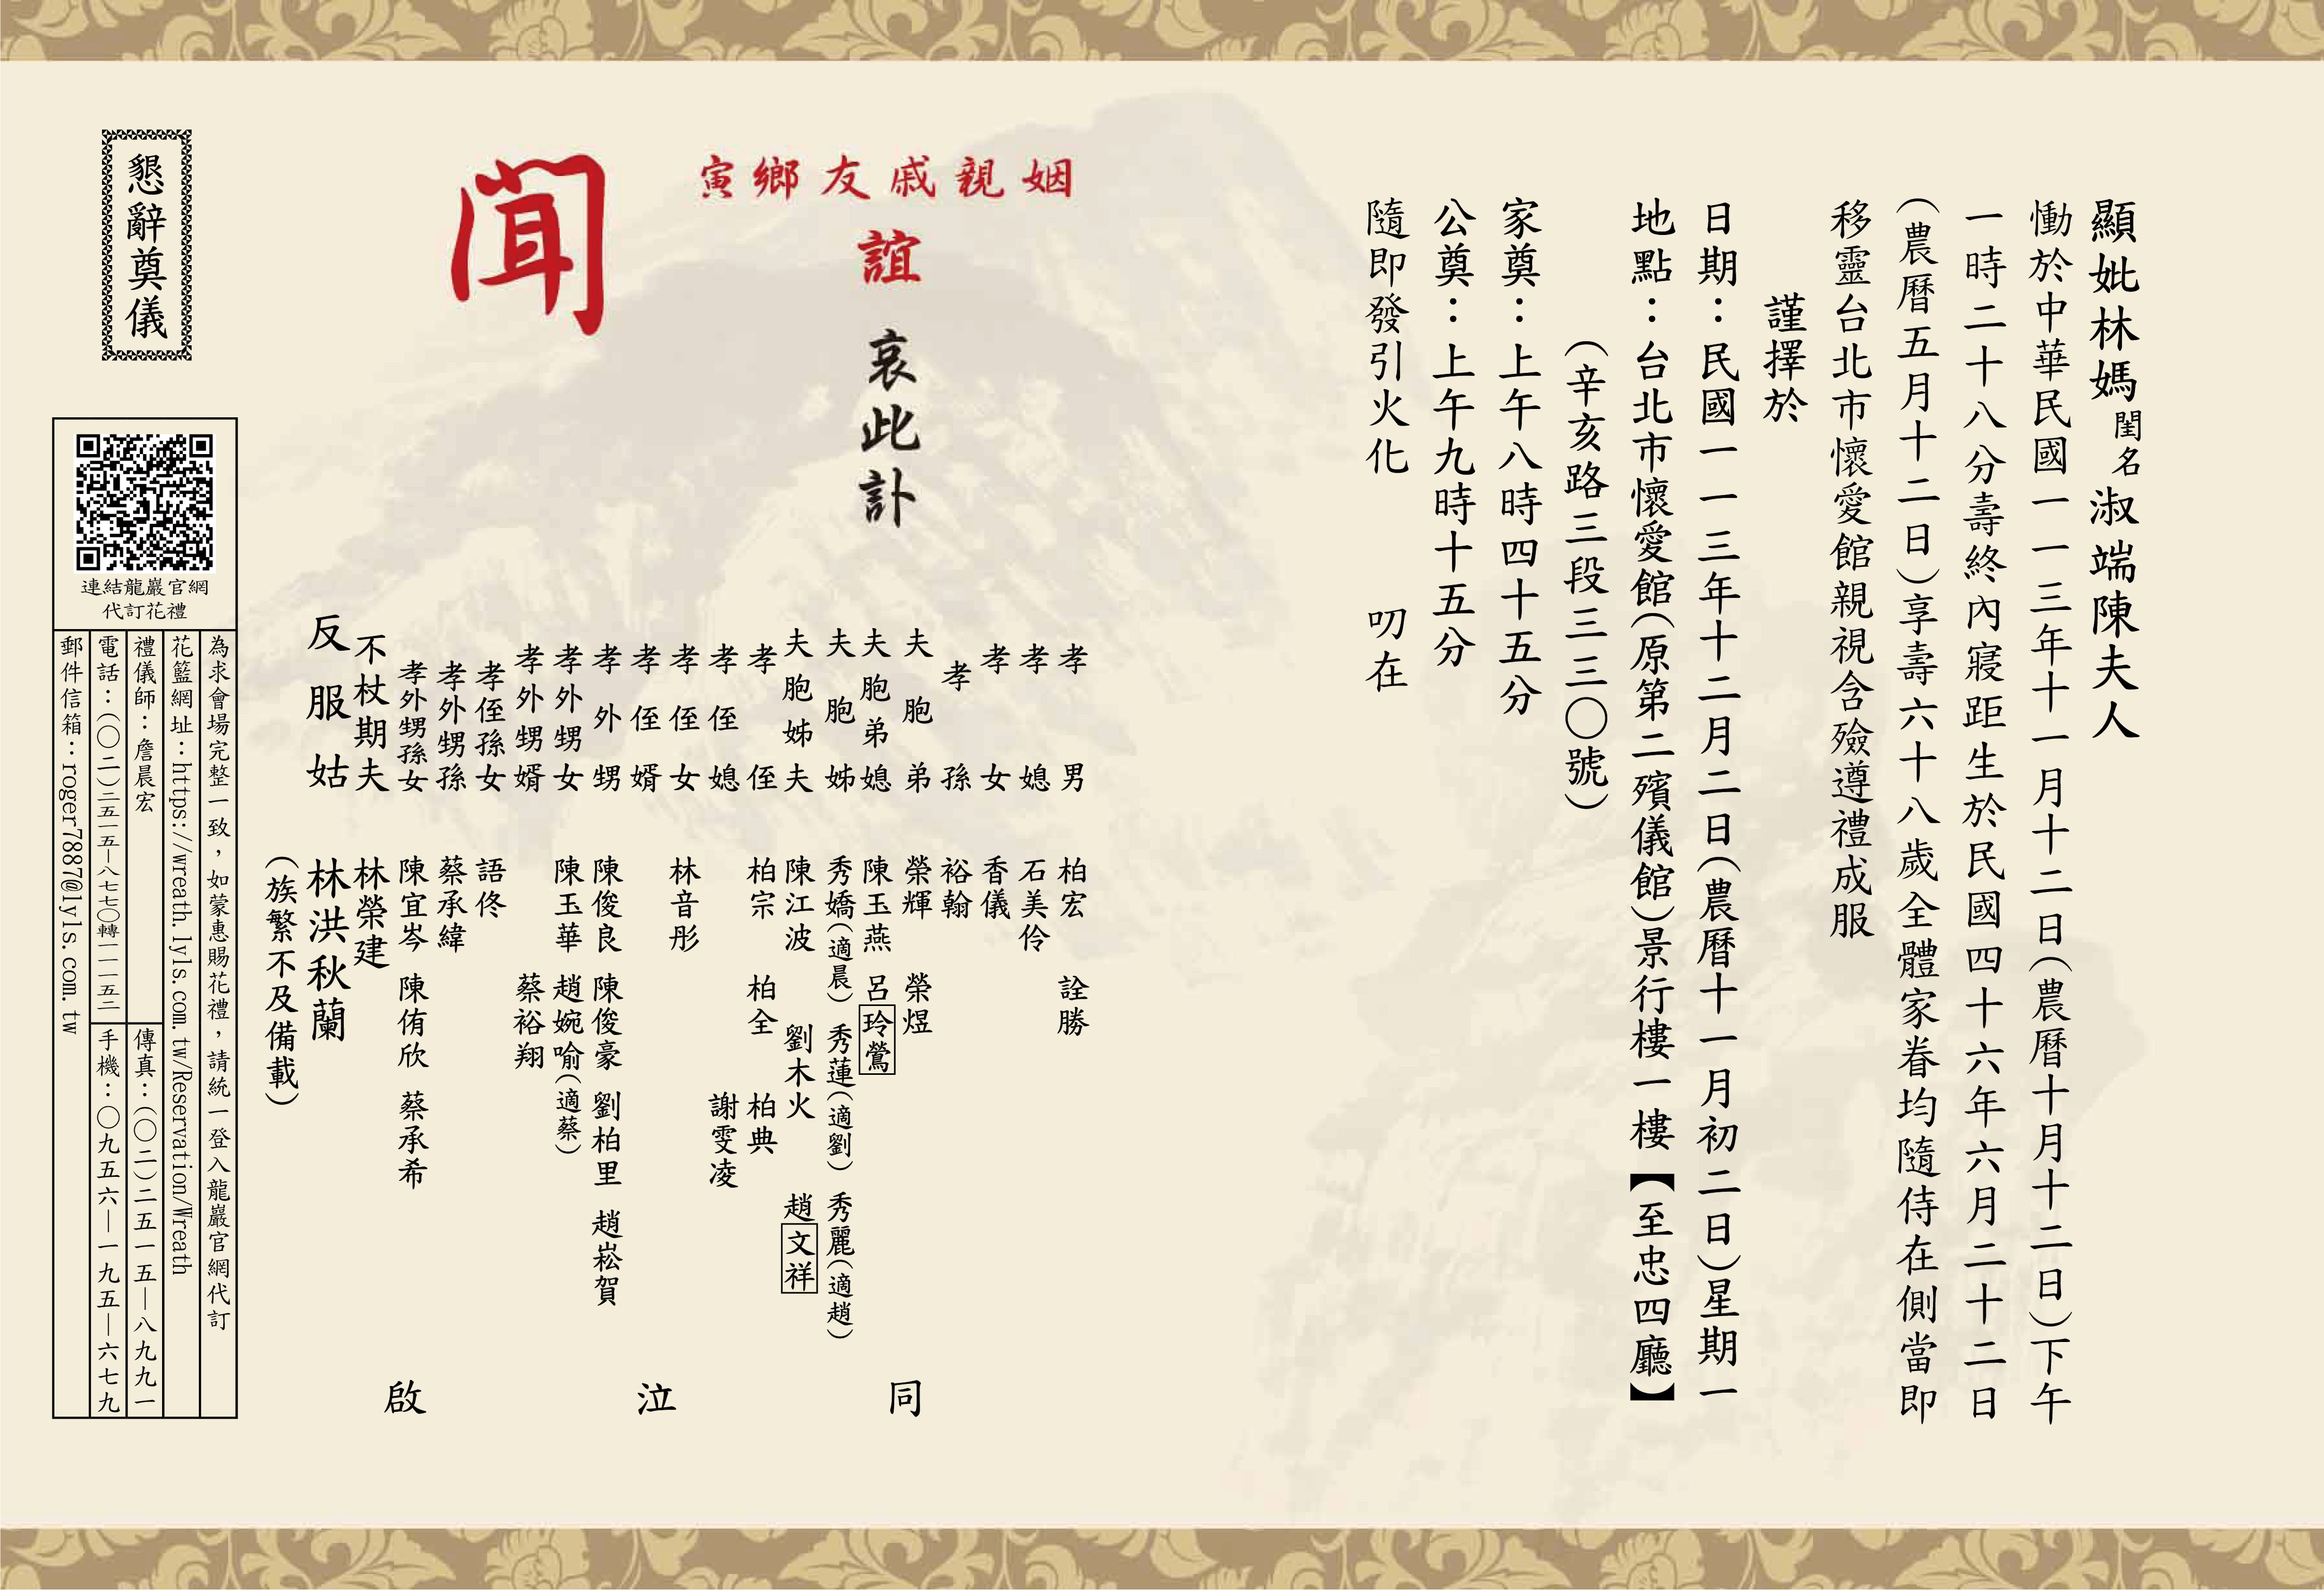 顯妣林媽閨名淑端陳夫人
慟於中華民國一一三年十一月十二日(農曆十月十二日)下午
一時二十八分壽終內寢距生於民國四十六年六月二十二日
(農曆五月十二日)享壽六十八歲全體家眷均隨侍在側當即
移靈台北市懷愛館親視含殮遵禮成服
謹擇於
日期：民國一一三年十二月二日(農曆十一月初二日)星期一
地點：台北市懷愛館(原第二殯儀館)景行樓一樓【至忠四廳】
(辛亥路三段三三〇號)
家奠：上午八時四十五分
公奠：上午九時十五分
隨即發引火化 叨在
姻親戚友鄉寅
誼
哀此訃
聞
孝男 柏宏 詮勝
孝媳 石美伶
孝女 香儀
孝孫 裕翰
夫胞弟 榮輝 榮煜
夫胞弟媳 陳玉燕 呂玲鶯
夫胞姊 秀嬌(適晨) 秀蓮(適劉) 秀麗(適趙)
夫胞姊夫 陳江波 劉木火 趙文祥
孝侄 柏宗 柏全 柏典
孝侄媳 謝雯凌
孝侄女 林音彤
孝侄婿
孝外甥 陳俊良 陳俊豪 劉柏里 趙崧賀
孝外甥女 陳玉華 趙婉喻(適蔡)
孝外甥婿 蔡裕翔
孝侄孫女 語佟
孝外甥孫 蔡承緯
孝外甥孫女 陳宜岑 陳侑欣 蔡承希
不杖期夫 林榮建
反服姑 林洪秋蘭
(族繁不及備載)
同泣啟
懇辭奠儀
連結龍巖官網
代訂花禮
為求會場完整一致，如蒙惠賜花禮，請統一登入龍巖官網代訂
花籃網址：https://wreath.lyls.com.tw/Reservation/Wreath
禮儀師：詹晨宏
傳真：(〇二)二五一五—八九九一
電話：(〇二)二五一五—八七七〇轉一一一五二
手機：〇九五六—一九五—六七九
郵件信箱：roger7887@lyls.com.tw